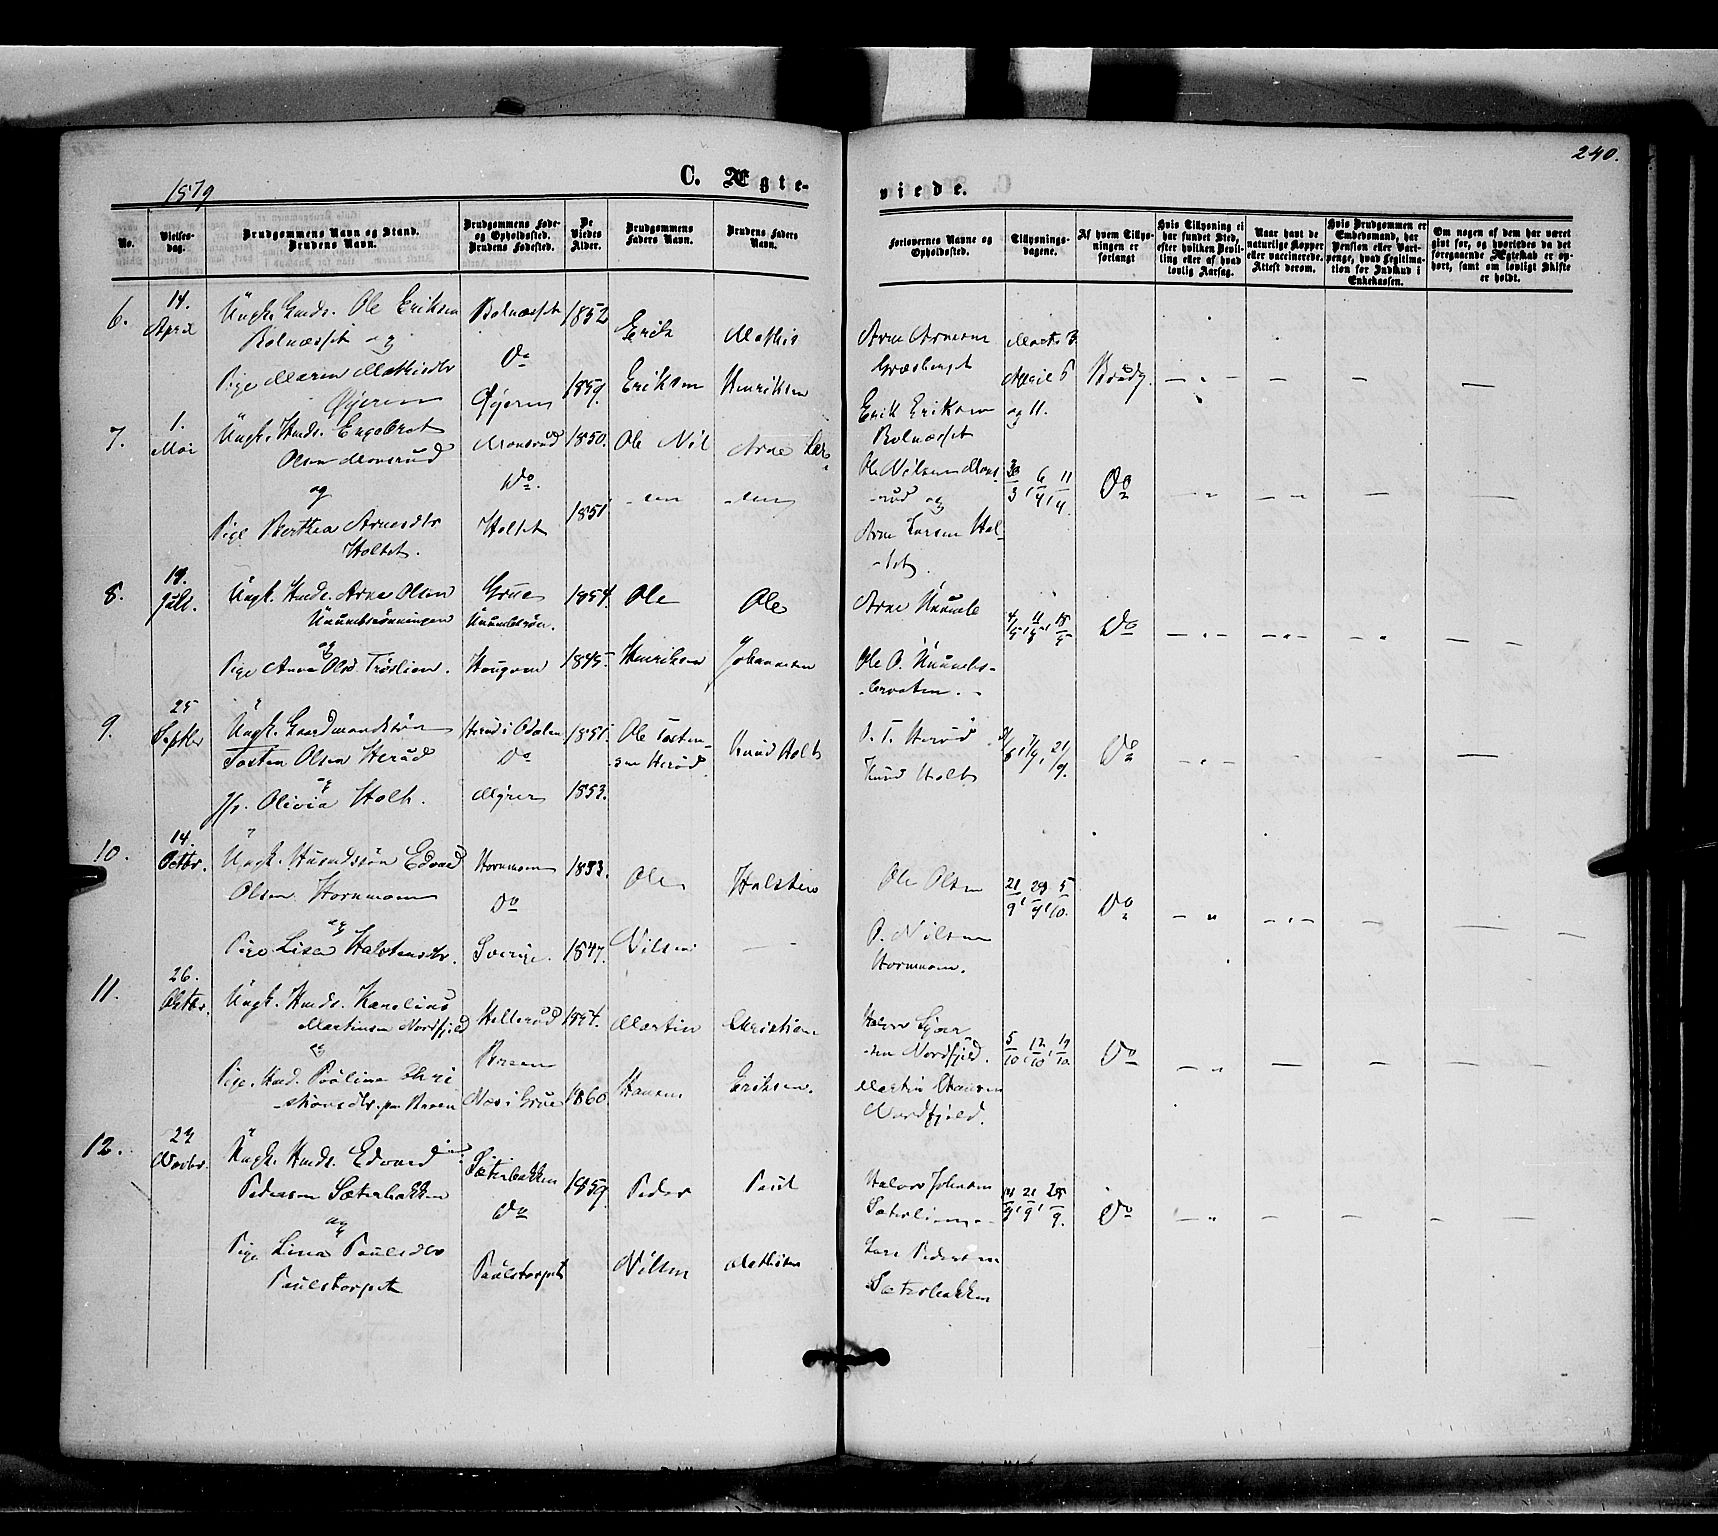 240.
1879
C. Ægte-
viede.
No.
Vielses-
dag.
Brudgommens Navn og Stand.
Brudens Navn.
Brudgommens Føde-
og Opholdssted.
Brudens Fødested.
De
Viedes
Alder.
Brudgommens
Faders Navn.
Brudens Faders
Navn.
Forlovernes Navne og
Opholdssted.
Tillysnings-
dagene.
Af hvem Tillys-
ningen er
forlangt
Hvis Tillysning ei
har fundet Sted,
efter hvilken Bevil-
ling eller af hvad
lovlig Aarsag.
Naar havt de
naturlige Kopper
eller vaccinerede.
Attest derom.
Hvis Brudgommen er
Embedsmand, har
Pension eller Vart-
penge, hvad Legitima-
tion for Indskud i
Enkekassen.
Om nogen af dem har været
gift før, og hvorledes da det
foregaaende Ægteskab er op-
hørt, samt om lovligt Skifte
er holdt.
6.
14.
April
Ungk. Ole Eriksen
Bolnæsset og
Pige Maren Mathisdtr
Øyeren
Bolnæsset
Do
Øyeren
1852
1859.
Erik
Eriksen
Mathis
Henriksen
Arne Arnesen
Græsberget
Erik Eriksen
Bolnæsset
Marts 3
April 5
og 11.
Brudg.
7.
1.
Mai
Ungk. Huds. Engebret
Olsen Monsrud
og
Pige Berthea Arnesdtr
Holtet.
Monsrud
Do.
Holtet
1850.
1851
Ole Nil
-sen
Arne Lar
-sen
Ole Nilsen Mons
-rud og
Arne Larsen Hol-
-tet.
30/3, 6/4, 11/4.
Do
8.
19.
Juli.
Ungk. Huds. Arne Olsen
og
Pige Anna Olsd. Trøslien.
Grue
Haugene
1854.
1845.
Ole
Henriksen
Ole
Johannesen
Arne
Ole O.
-braaten.
Do
9.
25
Septbr
Ungk. Gaardmandssøn
Tosten Olsen Herud
og
Jfr. Olivia Holt.
Herud i Odalen
Do
Myren
1851.
1853.
Ole Tosten-
sen Herød
Knud Holt
O. T. Herød
Knud Holt
7/9, 21/9.
Do
10.
14.
Octbr.
Ungk. Husmdssøn Edvard
Olsen Hornmoen
og
Pige Lisa Halstensdtr.
Hornmoen
Do
Sverige.
1833.
1847.
Ole
Nilsen
Halsten
Ole Olsen
O. Nilsen
Hornmoen.
21/9, 28/9, 5/10.
Do
11.
26.
Octbr.
Ungk. Huds. Karelius
Martinsen Nordfjeld
og
Pige. Husd. Pauline Chri
-stiansdtr. paa Braaen
Hellerud
Braaen
Næs i Grue
1854.
1860.
Martin
Hansen
Christian
Eriksen.
Halvor
-sen Nordfjeld.
Martin Hansen
Nordfjeld.
5/10, 12/10, 19/10.
Do
12.
Novbr.
Ungk. Huds. Edvard
Pedersen Sæterbakken
og
Pige Lina Paulsdtr
Paulstorpet
Sæterbakken
Do
Paulstorpet
1859.
Peder
Nilsen
Paul
Mathisen
Halvor Johnsen
Sæterlien
Lars Pedersen
Sæterbakken
14/9, 21/9, 28/9.
Do